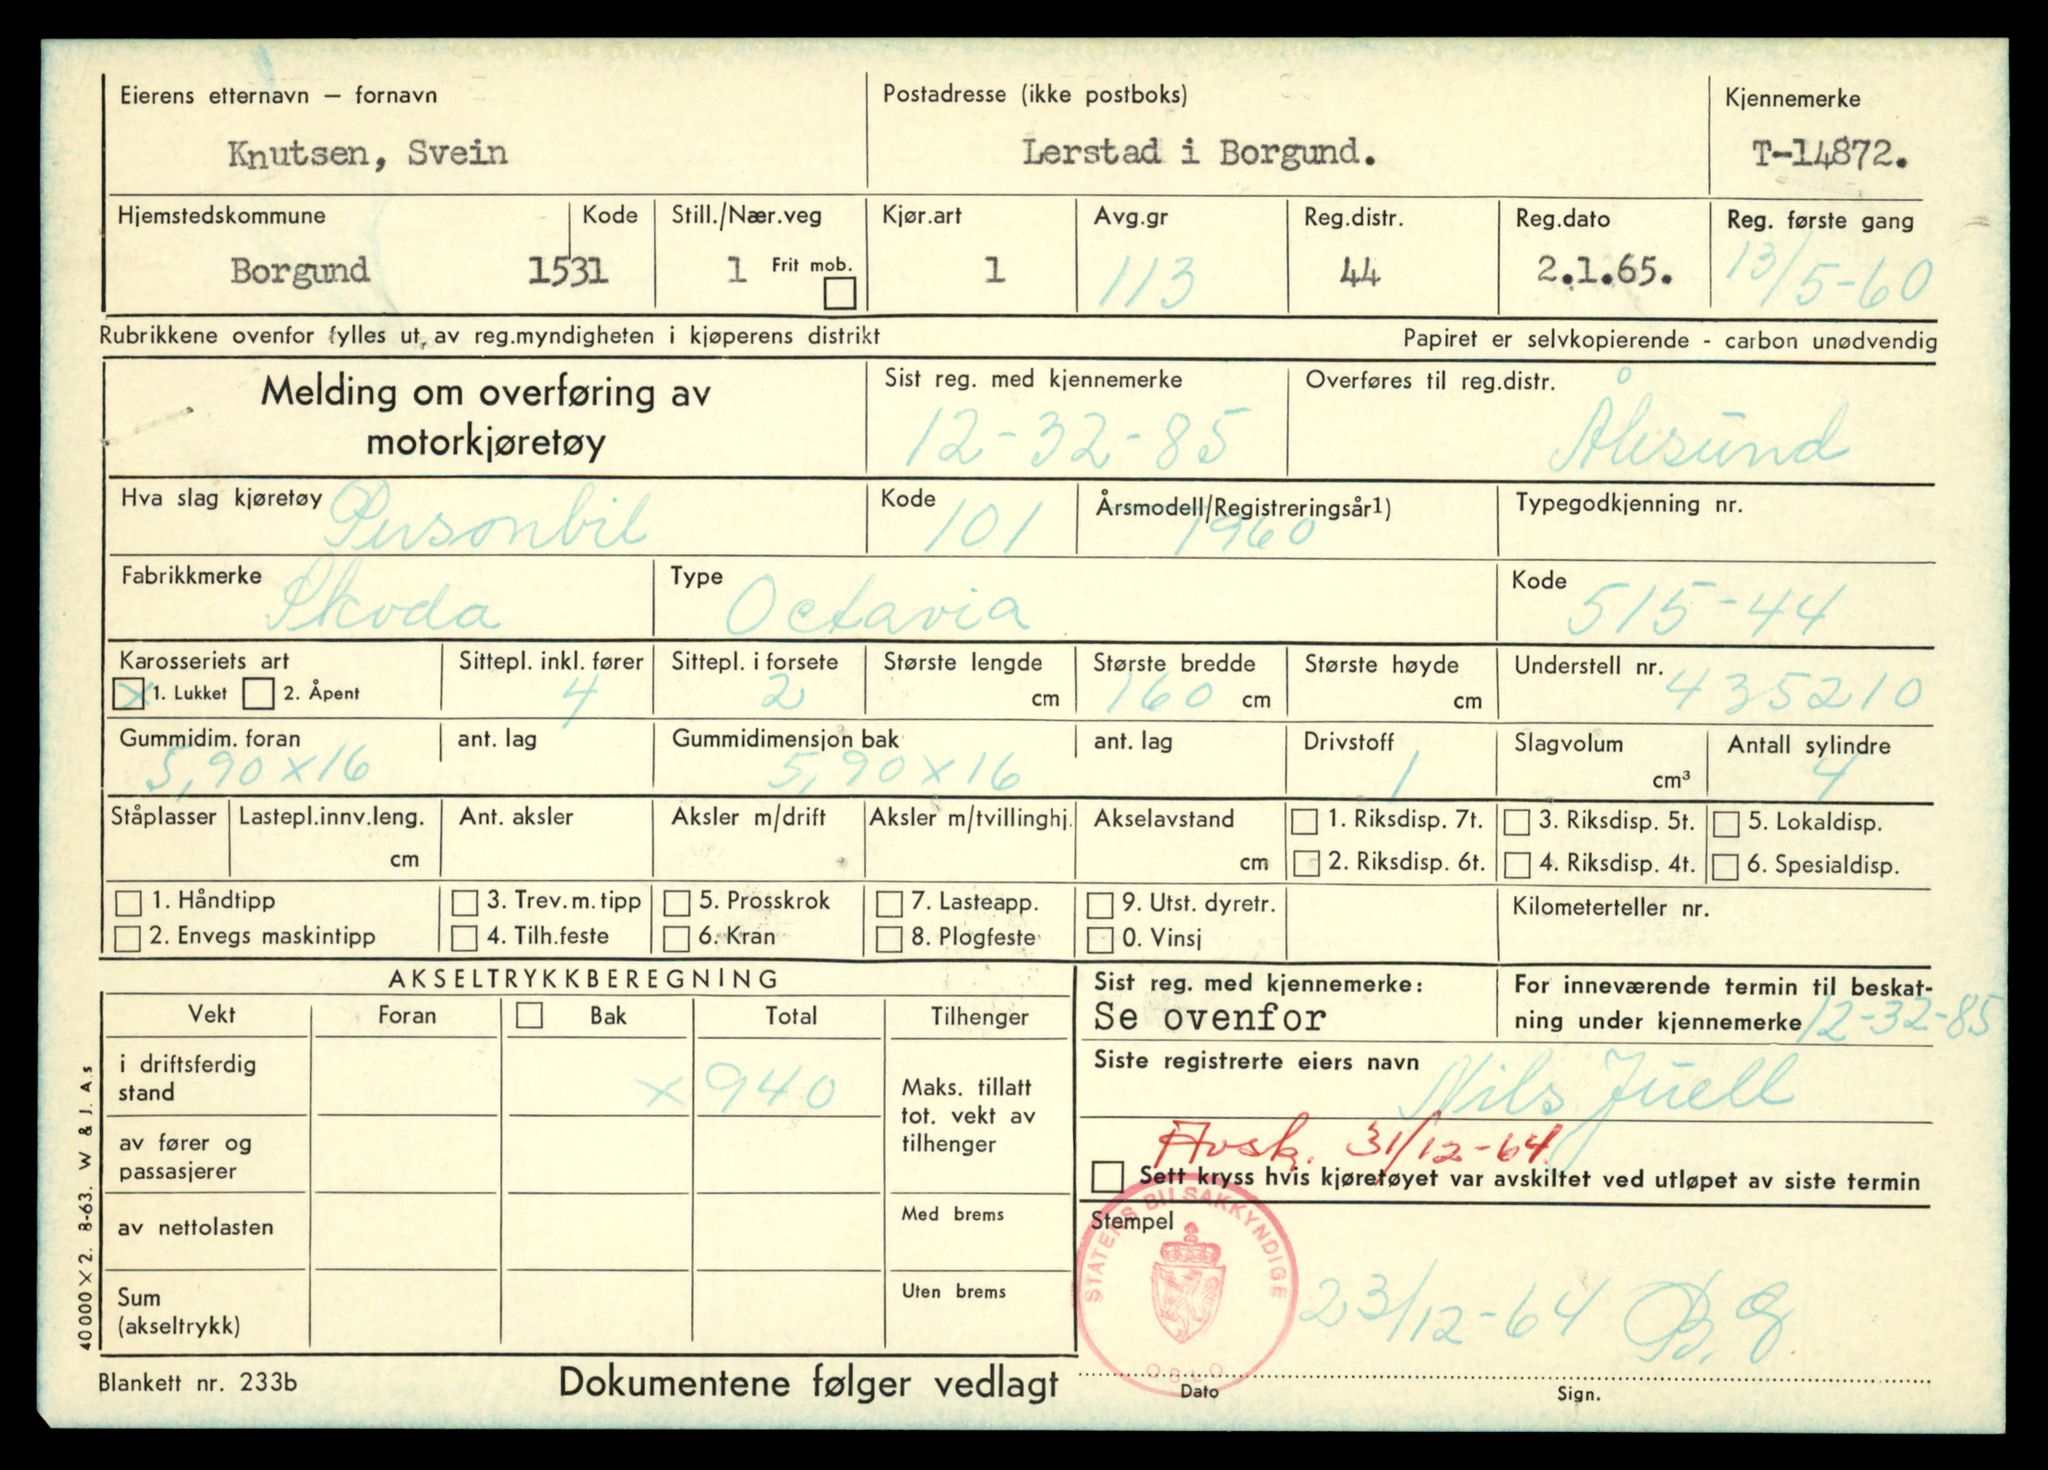 Eierens etternavn — fornavn
Postadresse (ikke postboks)
Kjennemerke
Knutsen, Svein
Lerstad i Borgund.
T-14872.
Hjemstedskommune
Kode
Still./Nær.veg
Kjør.art
Avg.gr
Reg.distr.
Reg.dato
Reg. første gang
Borgund
1531
1
Frit mob.
1
113
44
2.1.65.
13/5-60
Rubrikkene ovenfor fylles ut, av reg.myndigheten i kjøperens distrikt
Papiret er selvkopierende - carbon unødvendig
Melding om overføring av
motorkjøretøy
Sist reg. med kjennemerke
12-32-85
Overføres til reg.distr.
Ålesund
Hva slag kjøretøy
Personbil
Kode
101
Årsmodell/Registreringsår1)
1960
Typegodkjenning nr.
Fabrikkmerke
Skoda
Type
Octavia
Kode
515-44
Karosseriets art
X 1. Lukket
2. Åpent
Sittepl. inkl. fører
4
Sittepl. i forsete
2
Største lengde
cm
Største bredde
160 cm
Største høyde
cm
Understell nr.
435210
Gummidim. foran
5,90 x 16
ant. lag
Gummidimensjon bak
5,90 x 16
ant. lag
Drivstoff
1
Slagvolum
cm³
Antall sylindre
4
Ståplasser
Lastepl.innv.leng.
cm
Ant. aksler
Aksler m/drift
Aksler m/tvillinghj.
Akselavstand
cm
1. Riksdisp. 7t.
2. Riksdisp. 6t.
3. Riksdisp. 5t.
4. Riksdisp. 4t.
5. Lokaldisp.
6. Spesialdisp.
1. Håndtipp
2. Envegs maskintipp
3. Trev. m. tipp
4. Tilh.feste
5. Prosskrok
6. Kran
7. Lasteapp.
8. Plogfeste
9. Utst. dyretr.
0. Vinsj
Kilometerteller nr.
AKSELTRYKKBEREGNING
Vekt
Foran
Bak
Total
Tilhenger
i driftsferdig
stand
x 940
Maks. tillatt
tot. vekt av
tilhenger
av fører og
passasjerer
av nettolasten
Med brems
Sum
(akseltrykk)
Uten brems
Sist reg. med kjennemerke:
Se ovenfor
For inneværende termin til beskat-
ning under kjennemerke 12-32-85
Siste registrerte eiers navn
Nils Juell
Avsk. 31/12-64.
Sett kryss hvis kjøretøyet var avskiltet ved utløpet av siste termin
Stempel
STATENS BILSAKKYNDIGE
OSLO
23/12-64
Dato
Sign.
40000 X 2. 8-63. W & J. A.s
Blankett nr. 233b
Dokumentene følger vedlagt